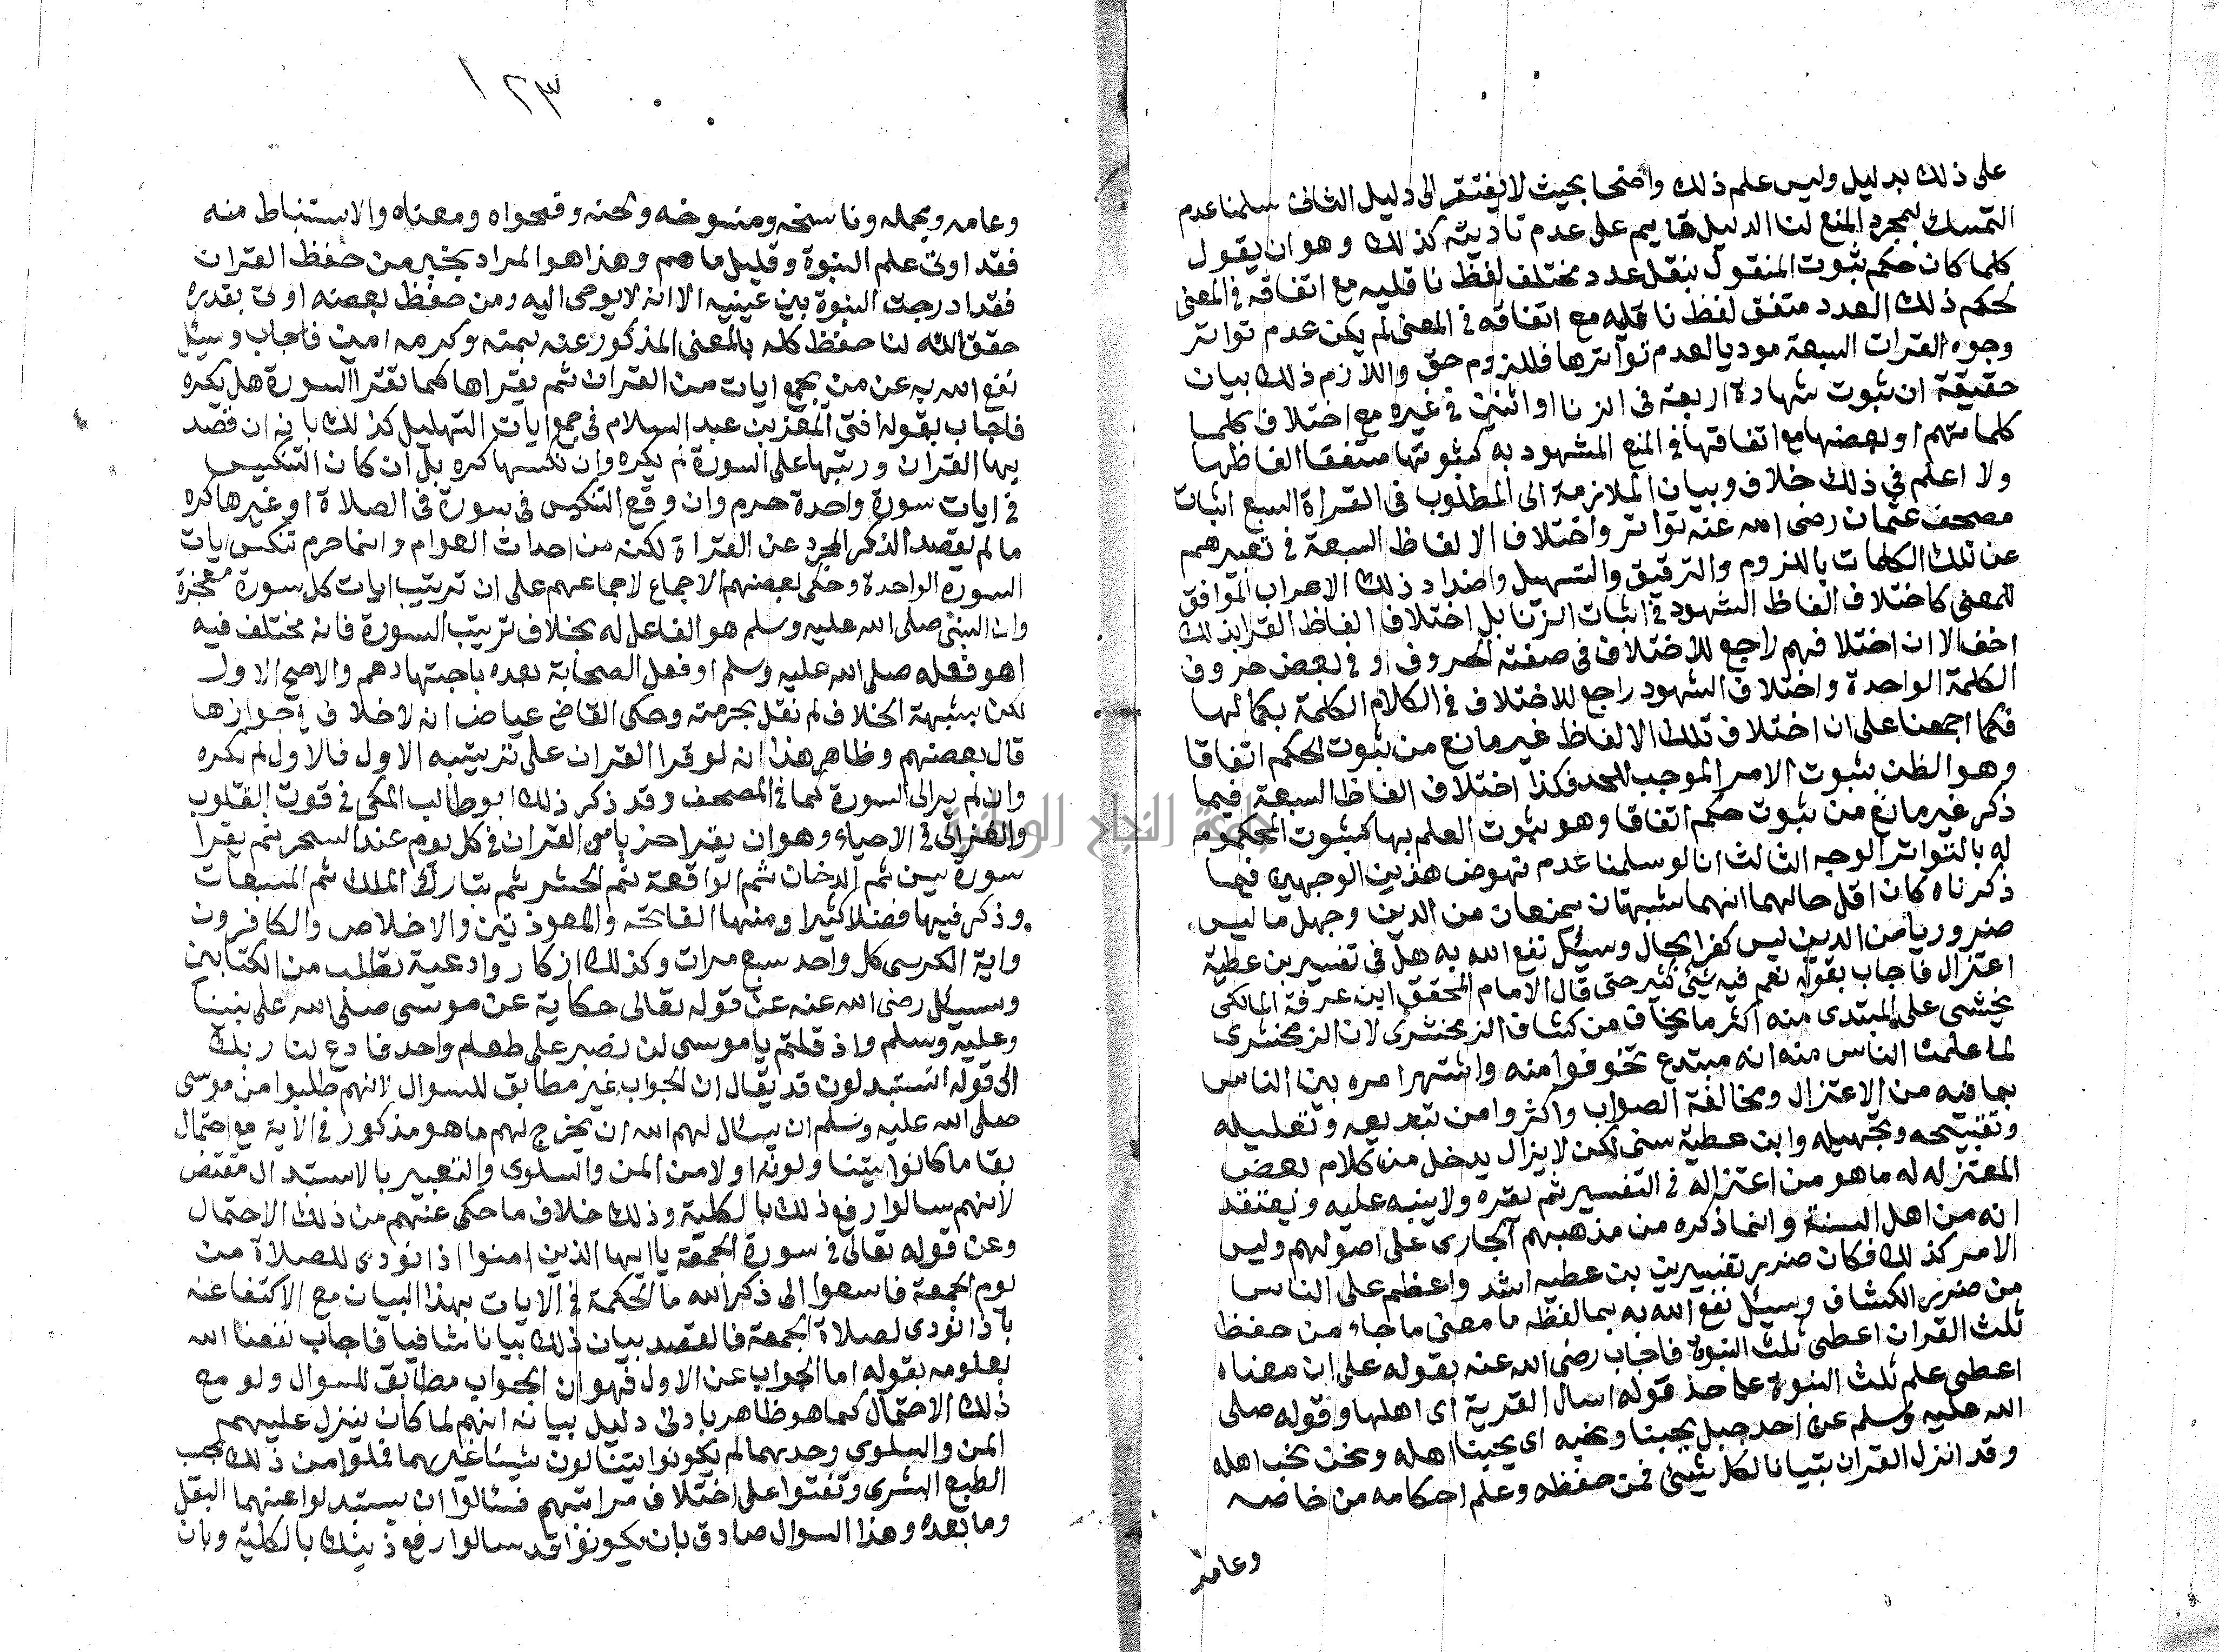 على ذلك بدليل وليس علم ذلك واضحا بحيث لا يفتقر الى دليل الثانى سلمنا عدم
التمسك بمجرد المنع لنا الدليل قايم على عدم تاديته كذلك وهو ان يقول
كلما كان حكم ثبوت المنقول بنقل عدد مختلف لفظ ناقليه مع اتفاقه فى المعنى
كحكم ذلك العدد متفق لفظ ناقله مع اتفاقه فى المعنى لم يكن عدم تواتر
وجوه القرات السبعة موديا لعدم تواترها فالملزوم حق واللازم ذلك بيان
حقيقة ان ثبوت شهادة اربعة فى الزنا او اثنين فى غيره مع اختلاف كلما
كلماتهم او بعضها مع اتفاقها فى المنع المشهود به كثبوتها متفقا الفاظها
ولا اعلم فى ذلك خلاف وبيان الملازمة الى المطلوب فى القراة السبع اثبات
مصحف عثمان رضى الله عنه تواتر واختلاف الالفاظ السبعة فى تعبرهم
عن تلك الكلمات بالنروم والترقيق والتسهيل واضداد ذلك الاعراب الموافق
للمعنى كاختلاف الفاظ الشهود فى اثبات الزنا بل اختلاف الفاظ القرا بذلك
اخف الا ان اختلافهم راجع للاختلاف فى صفة الحروف او فى بعض حروف
الكلمة الواحدة واختلاف الشهود راجع للاختلاف فى الكلام الكلمة بكمالها
فكما اجمعنا على ان اختلاف تلك الالفاظ غير مانع من ثبوت الحكم اتفاقا
وهو الظن بثبوت الامر الموجب للحد فكذا اختلاف الفاظ السبعة فيما
ذكر غير مانع من ثبوت حكم اتفاقا وهو ثبوت العلم بها كثبوت المحكوم
له بالتواتر الوجه الثالث انا لو سلمنا عدم نهوض هذين الوجهين فيما
ذكرناه كان اقل حالهما انهما شبهتان يمنعان من الدين وجهل ما ليس
ضروريا من الدين ليس كفرا بحال وسيئل نفع الله به هل فى تفسير بن عطية
اعتزال فاجاب بقوله نعم فيه شيئ كثير حتى قال الامام المحقق ابن عرفة المالكى
يخشى على المبتدى منه اكثر ما يخاف من كشاف الزمخشرى لان الزمخشرى
لما علمت الناس منه انه مبتدع تخوفوا منه واشتهر امره بين الناس
بما فيه من الاعتزال ومخالفة الصواب واكثروا من تبديعه وتعليله
وتقبيحه وتجهيله وابن عطية سنى لكن لا يزال يدخل من كلام بعض
المعتزله له ما هو من اعتزاله فى التفسير ثم يقره ولا ينبه عليه ويعتقد
انه من اهل السنة وانما ذكره من مذهبهم الجارى على اصولهم وليس
الامر كذلك فكان ضرر تفسير بن عطيه اشد واعظم على الناس
من ضرر الكشاف وسيئل نفع الله به بما لفظه ما معنى ما جاء من حفظ
ثلث القران اعطى ثلث النبوة فاجاب رضى الله عنه بقوله على ان معناه
اعطى علم ثلث النبوة على حذ قوله اسال القرية اى اهلها وقوله صلى
الله عليه وسلم عن احد جبل يحبنا ونحبه اى يحبنا اهله ونحن نحب اهله
وقد انزل القران تبيانا لكل شيئ فمن حفظه وعلم احكامه من خاصه
وعامه
١٢٣
وعامه ومجمله وناسخه ومنسوخه ولحنه وفحواه ومعناه والاستنباط منه
فقد اوتى علم النبوة وقليل ما هم وهذا هو المراد بخبر من حفظ القران
فقد ادرجت النبوة بين عينيه الا انه لا يوحى اليه ومن حفظ بعضه اوتى بقدره
حقق الله لنا حفظ كله بالمعنى المذكور عنه بمنه وكرمه امين فاجاب وسيئل
نفع الله به عن من يجمع ايات من القران ثم يقراها كما تقرا السورة هل يكره
فاجاب بقوله افتى المعز بن عبد السلام فى جمع ايات التهليل كذلك بانه ان قصد
بها القران ورتبها على السورة لم يكره وان نكسها كره بل ان كان التنكيس
فى ايات سورة واحدة حرم وان وقع التنكيس فى سورة فى الصلاة او غيرها كره
ما لم يقصد الذكر المجرد عن القراة لكنه من احداث العوام وانما حرم تنكس ايات
السورة الواحدة وحكى بعضهم الاجماع لاجماعهم على ان ترتيب ايات كل سورة معجزة
وان النبى صلى الله عليه وسلم هو الفاعل له بخلاف ترتيب السورة فانه مختلف فيه
اهو فعله صلى الله عليه وسلم او فعل الصحابة بعده باجتهادهم والاصح الاول
لكن بشبهة الخلاف لم نقل بحرمته وحكى القاضى عياض انه لا خلاف فى جوازها
قال بعضهم وظاهر هذا انه لو قرا القران على ترتيبه الاول فالاول لم يكره
وان لم يرالى السورة كما فى المصحف وقد ذكر ذلك ابو طالب المكى فى قوت القلوب
والغزالى فى الاحياء وهو ان يقرا حزبا من القران فى كل يوم عند السحر ثم يقرا
سورة يس ثم الدخان ثم الواقعة ثم الحشر ثم تبارك الملك ثم المسبعات
وذكر فيها فضلا كثيرا ومنها الفاتحه والمعوذتين والاخلاص والكافرون
واية الكرسى كل واحد سبع مرات وكذلك اذكار وادعية تطلب من الكتابين
وسيئل رضى الله عنه عن قوله تعالى حكاية عن موسى صلى الله على نبينا
وعليه وسلم واذ قلتم يا موسى لن نصبر على طعام واحد فادع لنا ربك
الى قوله اتستبدلون قد يقال ان الجواب غير مطابق للسوال لانهم طلبوا من موسى
صلى الله عليه وسلم ان يسال لهم الله ان يخرج لهم ما هو مذكور فى الاية مع احتمال
بقا ما كانوا يتناولونه اولا من المن والسلوى والتعبير بالاستبدال مقتض
لانهم سالوا رفع ذلك بالكلية وذلك خلاف ما حكى عنهم من ذلك الاحتمال
وعن قوله تعالى فى سورة الجمعة يا ايها الذين امنوا اذا نودى للصلاة من
يوم الجمعة فاسعوا الى ذكر الله ما الحكمة فى الايات بهذا البيان مع الاكتفا عنه
باذا نودى لصلاة الجمعة فالقصد بيان ذلك بيانا شافيا فاجاب نفعنا الله
بعلومه بقوله اما الجواب عن الاول فهو ان الجواب مطابق للسوال ولو مع
ذلك الاحتمال كما هو ظاهر بادنى دليل بيانه انهم لما كان ينزل عليهم
المن والسلوى وحدهما لم يكونوا يتنالون شيئا غيرهما فملوا من ذلك بحب
الطبع البشرى وتفتوا على اختلاف مراتبهم فسئالوا ان يستبدلوا عنهما البقل
وما بعده وهذا السوال صادق بان يكونوا قد سالوا رفع ذينك بالكلية وبان